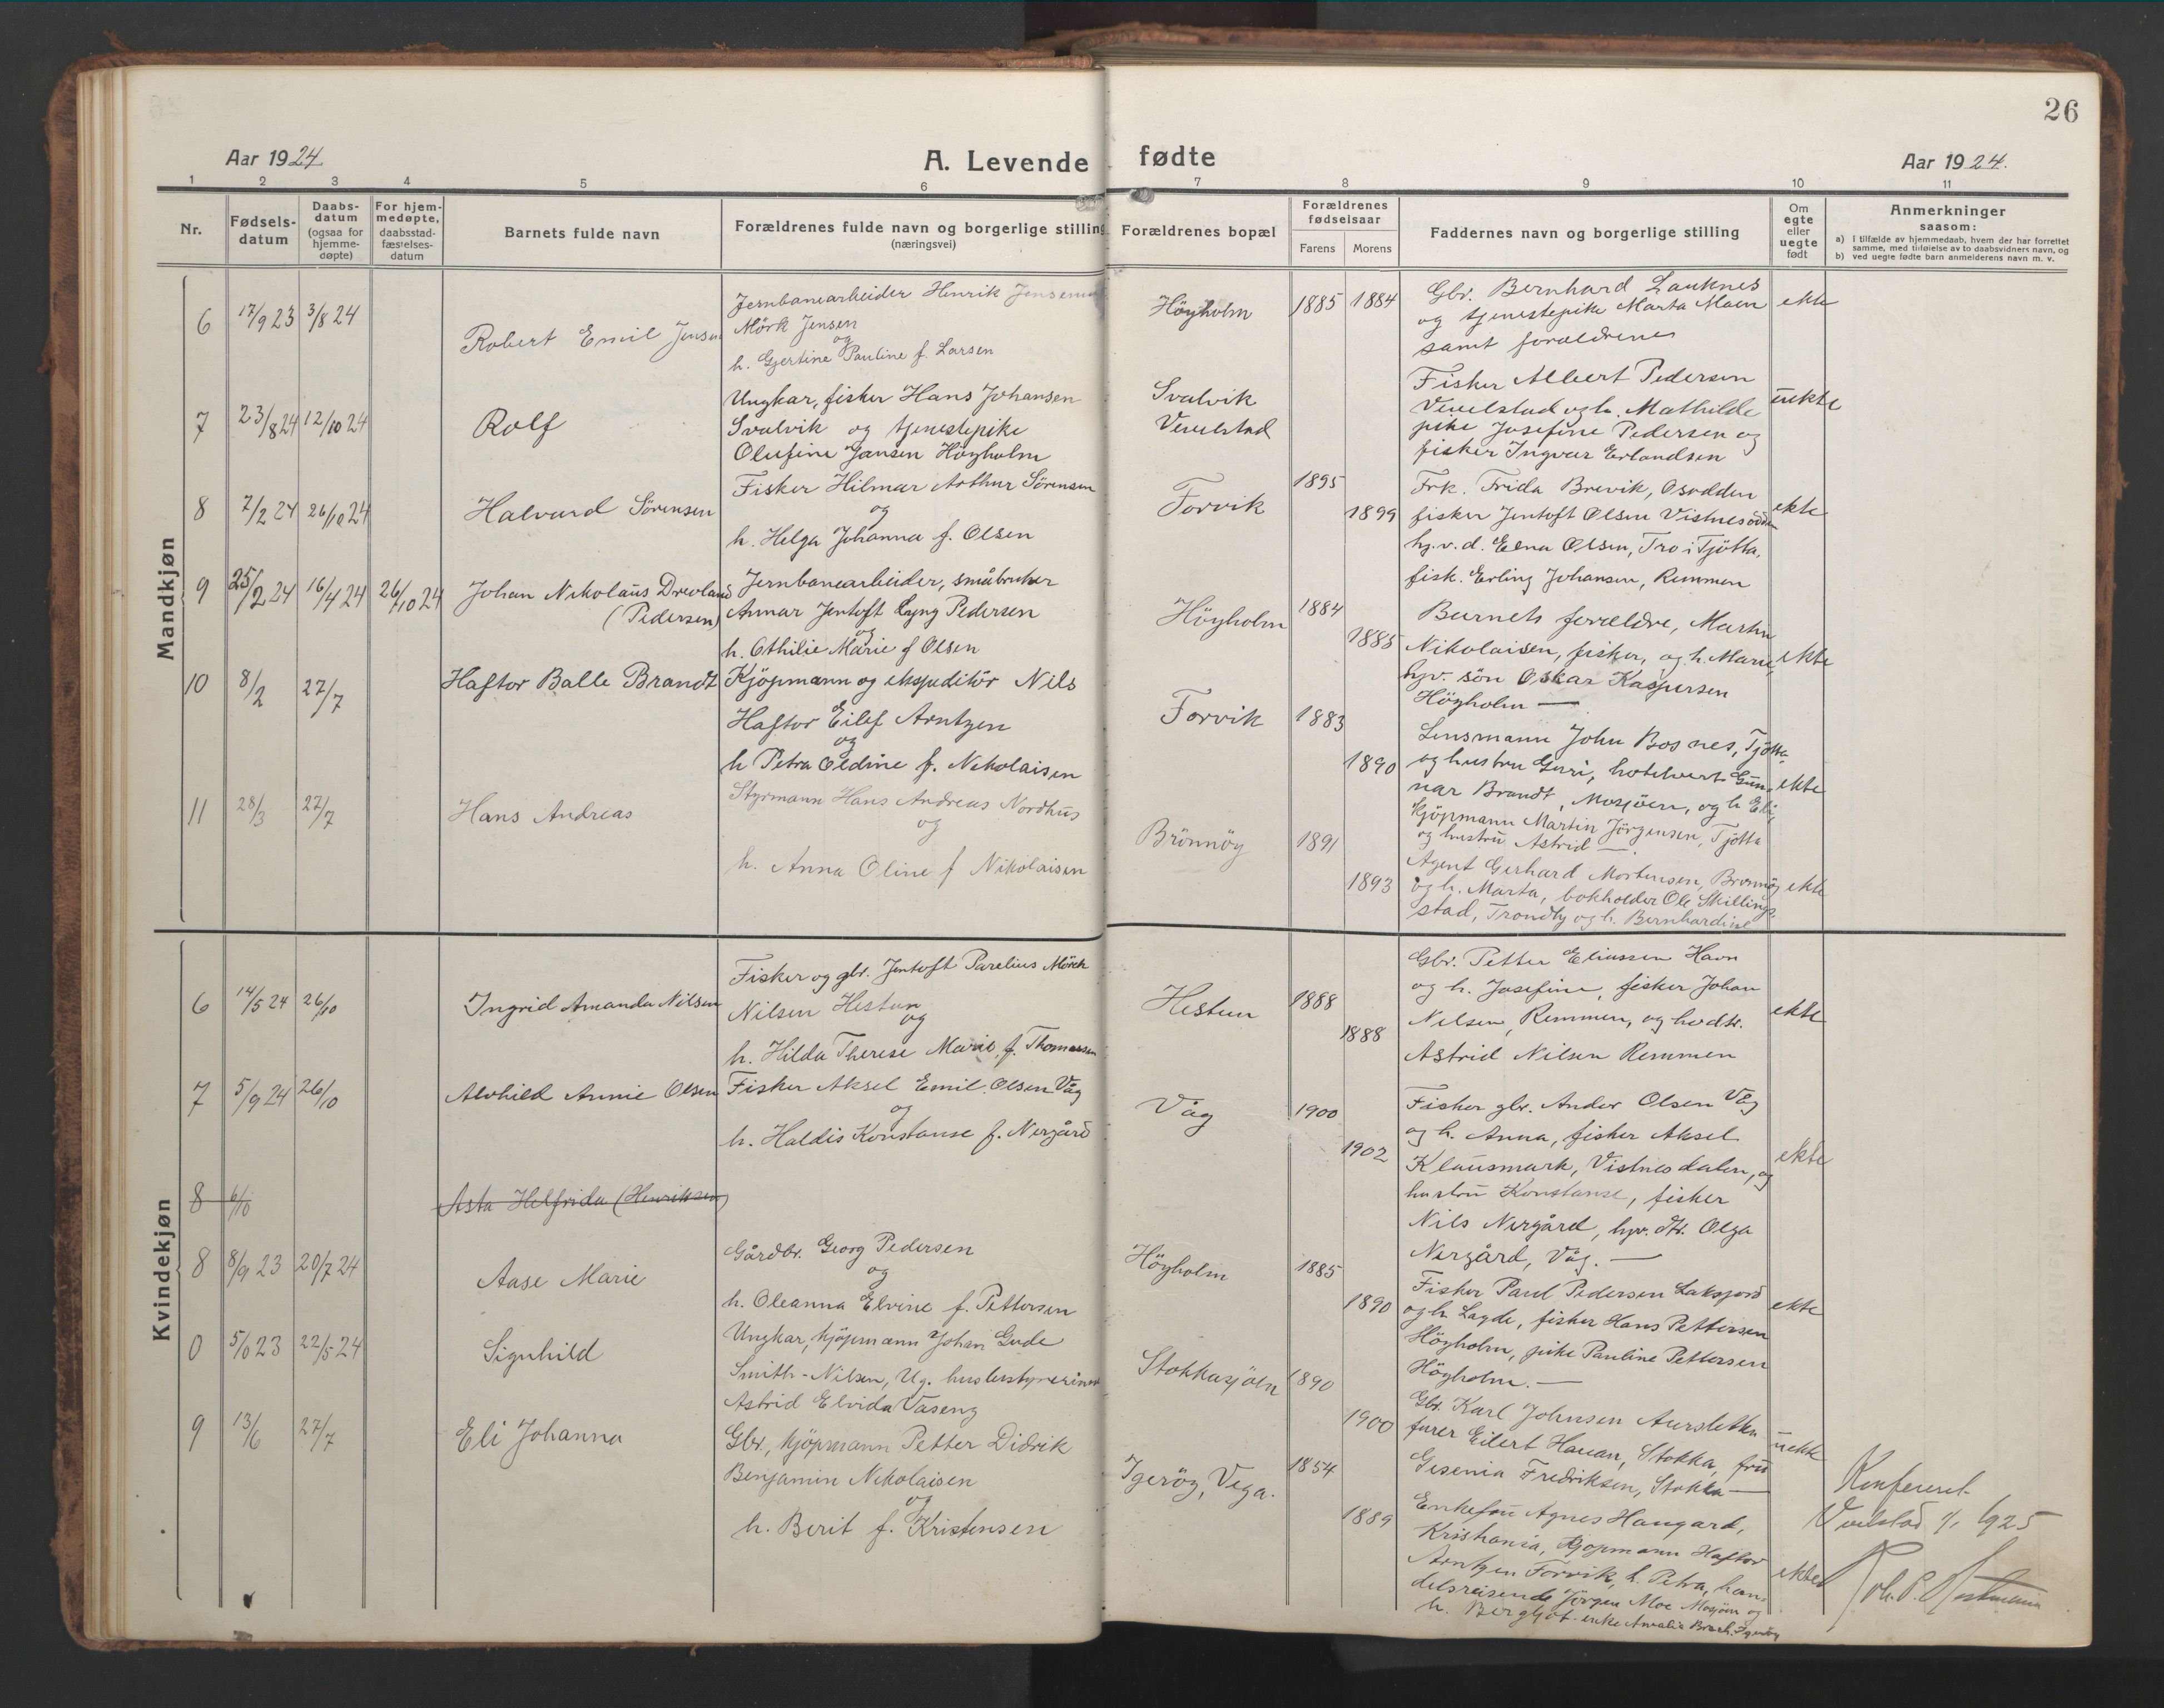 26
Aar 1924
A. Levende fødte
Aar 1924.
1 2 3 4 5 6 7 8 9 10 11
Nr.
Fødsels-
datum
Daabs-
datum
(ogsaa for
hjemme-
døpte)
For hjem-
medøpte,
daabsstad-
fæstelses-
datum
Barnets fulde navn
Forældrenes fulde navn og borgerlige stilling
(næringsvei)
Forældrenes bopæl
Forældrenes
fødselsaar
Farens Morens
Faddernes navn og borgerlige stilling
Om
egte
eller
uegte
født
Anmerkninger
saasom:
a) i tilfælde av hjemmedaab, hvem der har forrettet
samme, med tilføielse av to daabsvidners navn, og
b) ved uegte fødte barn anmelderens navn m. v.
Mandkjøn
6 17/9 23 3/8 24
Robert Emil Jensen
Jernbanearbeider Henrik Jensen
Mörk Jensen
og
h. Gjertine Pauline f. Larsen
Höyholm 1885 1884
Gbr. Bernhard Lauknes
og tjenestepike Marta Moen
samt forældrene
ekte
7 23/8 24 12/10 24
Rolf
Ungkar, fisker Hans Johansen
Svalvik og tjenestepike
Olufine Jansen Höyholm
Svalvik
Vevelstad
Fisker Albert Pedersen
Vevelstad og h. Mathilde
pike Josefine Pedersen og
fisker Ingvar Erlandsen
uekte
8 7/2 24 26/10 24
Halvard Sörensen
Fisker Hilmar Arthur Sörensen
og
h. Helga Johanna f. Olsen
Forvik
1895
1899
Frk. Frida Brevik, Osodden
fisker Jentoft Olsen Vistnesodden
hj.v.d. Elna Olsen, Tro i Tjötta,
fisk. Erling Johansen, Remmen
ekte
9 25/2 24 16/4 24 26/10 24
Johan Nikolaus Drevland
(Pedersen)
Jernbanearbeider, småbruker
Annar Jentoft Lyng Pedersen
og
h. Othilie Marie f Olsen
Höyholm
1884
1885
Barnets forældre, Martin
Nikolaisen, fisker, og h. Marie,
hjv. sön Oskar Kaspersen
Höyholm —
ekte
10 8/2 27/7
Haftor Balle Brandt
Kjöpmann og ekspeditör Nils
Haftor Eilef Arntzen
og
h Petra Oldine f. Nikolaisen
Forvik
1883
1890
Lensmann John Bosnes, Tjötta
og hustru Guri, hotelvert Gun-
nar Brandt, Mosjöen, og h. Eli,
Kjöpmann Martin Jörgensen, Tjötta
og hustru Astrid —.
ekte
11 28/3 27/7
Hans Andreas
Styrmann Hans Andreas Nordhus
og
h. Anna Oline f Nikolaisen
Brönnöy
1891
1893
Agent Gerhard Mortensen, Brönnöy
og h. Marta, bokholder Ole Skillings-
stad, Trondhj og h. Bernhardine
ekte
Kvindekjøn
6 14/5 24 26/10
Ingrid Amanda Nilsen
Fisker og gbr. Jentoft Parelius Mörch
Nilsen Hestun
og
h. Hilda Therese Marie f. Thomassen
Hestun
1888
1888
Gbr. Petter Eliassen Havn
og h. Josefine, fisker Johan
Nilsen, Remmen, og husdtr.
Astrid Nilsen Remmen
ekte
7 5/9 24 26/10
Alvhild Annie Olsen
Fisker Aksel Emil Olsen Våg
og
h. Haldis Konstanse f. Nergård
Våg
1900
1902
Fisker gbr. Andor Olsen Våg
og h. Anna, fisker Aksel
Klausmark, Vistnesdalen, og
hustru Konstanse, fisker
Nils Nergård, hjv. dtr. Olga
Nergård, Våg. —
ekte
8 6/10
Asta Helfrida (Henriksen)
8 8/9 23 20/7 24
Aase Marie
Gårdbr. Georg Pedersen
og
h. Oleanna Elvine f. Pettersen
Höyholm
1885
1890
Fisker Paul Pedersen Laksfjord
og h. Lagde, fisker Hans Pettersen
Höyholm, pike Pauline Pettersen
Höyholm. —
ekte
0 5/10 23 22/5 24
Signhild
Ungkar, kjöpmann Johan Gude
Smith-Nilsen, Ug. husbestyrerinne
Astrid Elvida Vaseng
Stokkasjöen
1890
1900
Gbr. Karl Johnsen Aursletten
furer Eilert Hauan, Stokka, fru
Gesenia Fredriksen, Stokka —
uekte
9 13/6 27/7
Eli Johanna
Gbr., kjöpmann Petter Didrik
Benjamin Nikolaisen
og
h. Berit f. Kristensen
Igeröy, Vega.
1854
1889
Enkefru Agnes Haugard,
Kristiania, kjöpmann Haftor
Arntzen Forvik, h. Petra, han-
delsreisende Jörgen Moe Mosjöen og
h. Bergljot enke Amalie Brech. Igeröy
ekte
Konfereret
Vevelstad 1/1 1925
Joh. P.